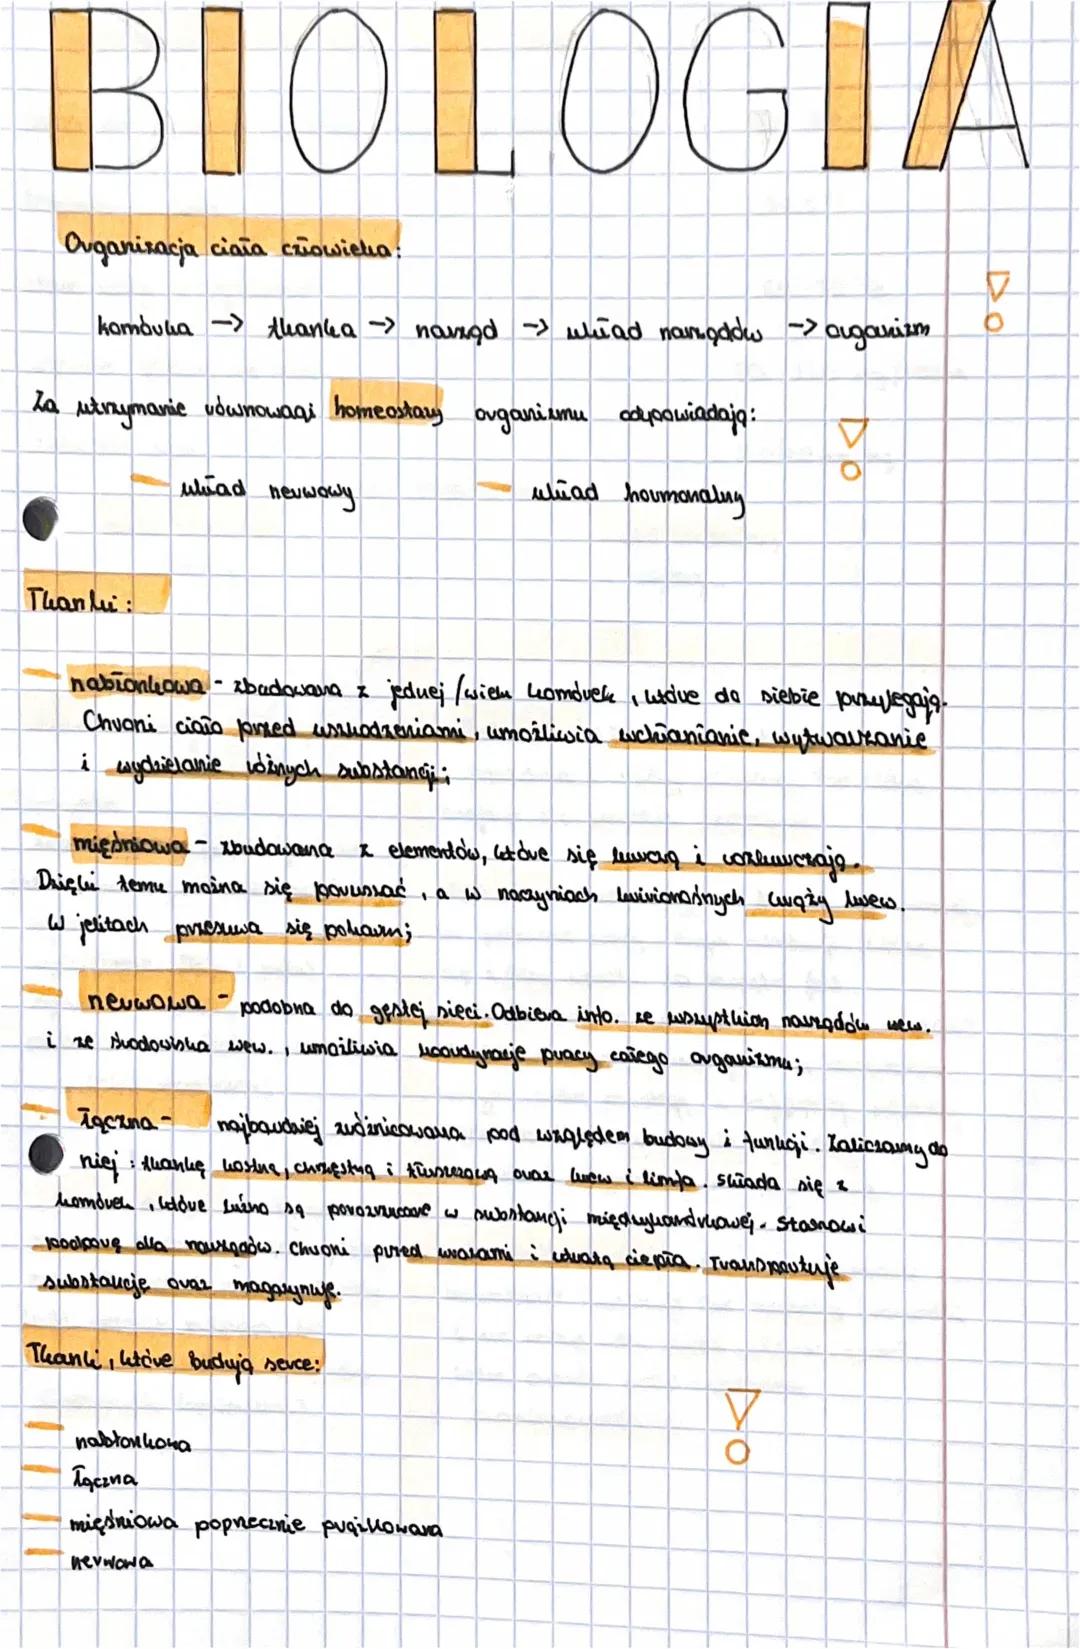 BIOLOGIA
Organizacja ciała człowieka:
komórka → tkanka → narząd → układ narządów → organizm
Za utrzymanie równowagi homeostazy organizmu odpowiadają:
układ nerwowy układ hormonalny
Tkanki:
nabłonkowa - zbudowana z jednej/wielu komórek, które do siebie przylegają.
Chroni ciało przed uszkodzeniami, umożliwia wchłanianie, wytwarzanie
i wydzielanie różnych substancji;
mięśniowa - zbudowana z elementów, które się kurczą i rozkurczają.
Dzięki temu można się poruszać, a w naczyniach krwionośnych krąży krew.
W jelitach przesuwa się pokarm;
nerwowa - podobna do gęstej sieci. Odbiera info. ze wszystkich narządów wew.
i ze środowiska wew., umożliwia koordynację pracy całego organizmu;
łączna - najbardziej zróżnicowana pod względem budowy i funkcji. Zaliczamy do
niej: tkankę kostną, chrzęstną i tłuszczową oraz krew i limfa. składa się z
komórek, które luźno są porozrzucane w substancji międzykomórkowej. Stanowi
podporę dla narządów. Chroni przed urazami i utratą ciepła. Transportuje
substancje oraz magazynuje.
Tkanki, które budują serce:
nabłonkowa
łączna
mięśniowa poprzecznie prążkowana
nerwowa